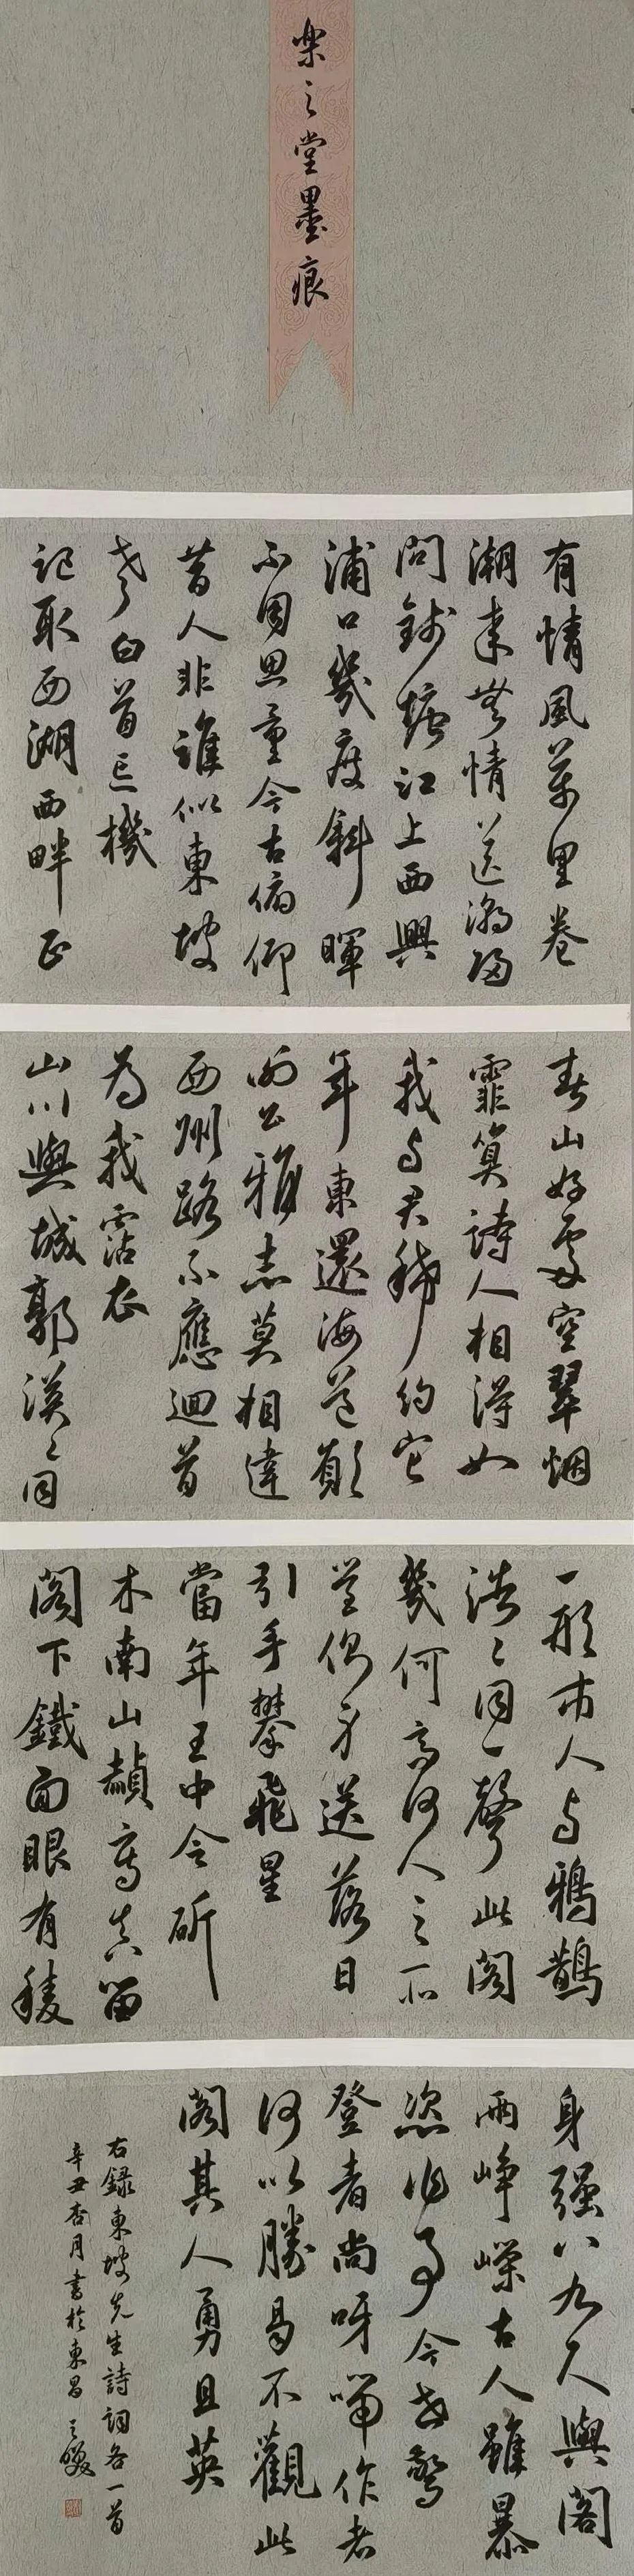 楽之堂墨痕
有情風萬里卷
潮来無情送潮歸
問錢塘江上西興
浦口幾度斜暉
不用思量今古俯仰
昔人非誰似東坡
老白首忘機
記取西湖西畔正
春山好處空翠烟
霏算詩人相得如
我与君稀約它
年東還海道願
謝公雅志莫相違
西州路不應迴首
為我霑衣
山川與城郭漠〻同
一形市人与鴉鵲
浩〻同一聲此閣
幾何高何人之所
營側身送落日
引手攀飛星
當年王中令斫
木南山赬寫真留
閣下鐵面眼有稜
身强八九尺與閣
兩崢嶸古人雖暴
恣作事今世驚
登者尚呀喘作者
何以勝曷不觀此
閣其人勇且英
右録東坡先生詩詞各一首
辛丑杏月書於東昌